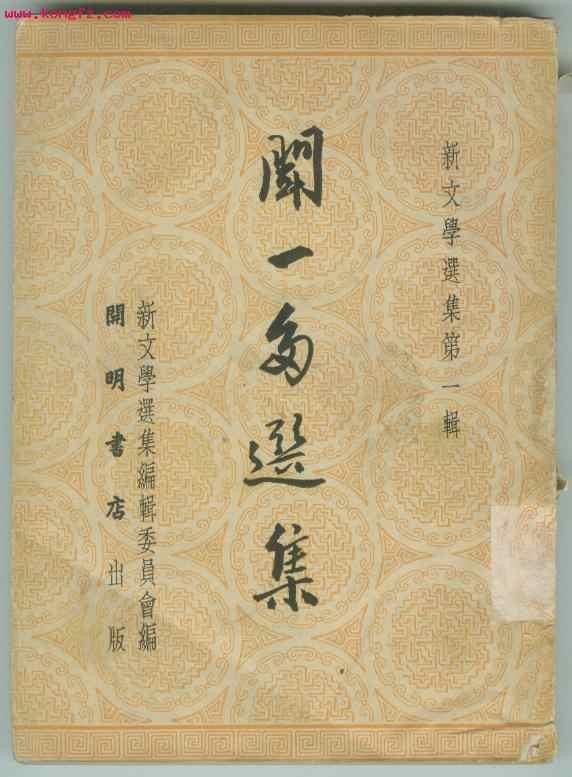 www.kongfz.com
新文學選集第一輯
聞一多選集
新文學選集編輯委員會編
開明書店出版